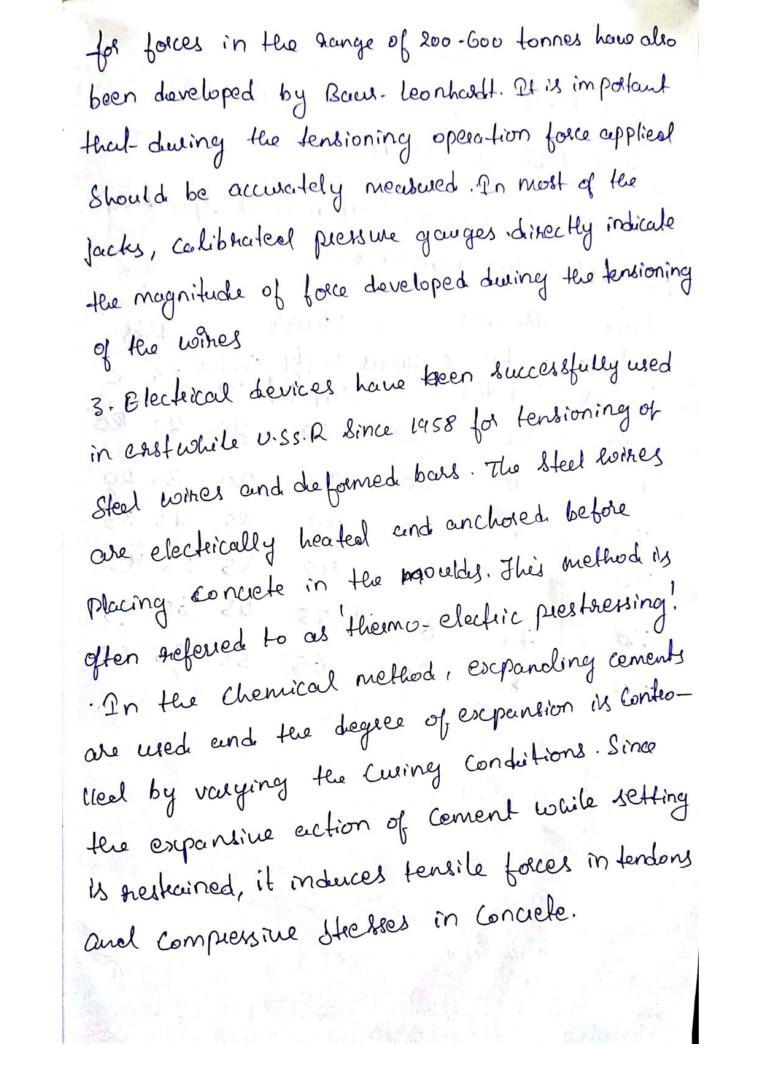 for forces in the range of 200-600 tonnes have also
been developed by Baur- Leonhardt. It is important
that during the tensioning operation force applied
should be accurately measured. In most of the
Jacks, calibrated pressure gauges directly indicate
the magnitude of force developed during the tensioning
of the wires
3. Electrical devices have been successfully used
in erstwhile U.SS.R since 1958 for tensioning of
steel wires and deformed bars. The steel wires
are electrically heated and anchored before
placing concrete in the moulds. This method is
often referred to as 'thermo-electric prestressing'.
In the chemical method, expanding cements
are used and the degree of expansion is contro-
lled by varying the curing conditions. Since
the expansive action of cement while setting
is restrained, it induces tensile forces in tendons
and compressive stresses in concrete.